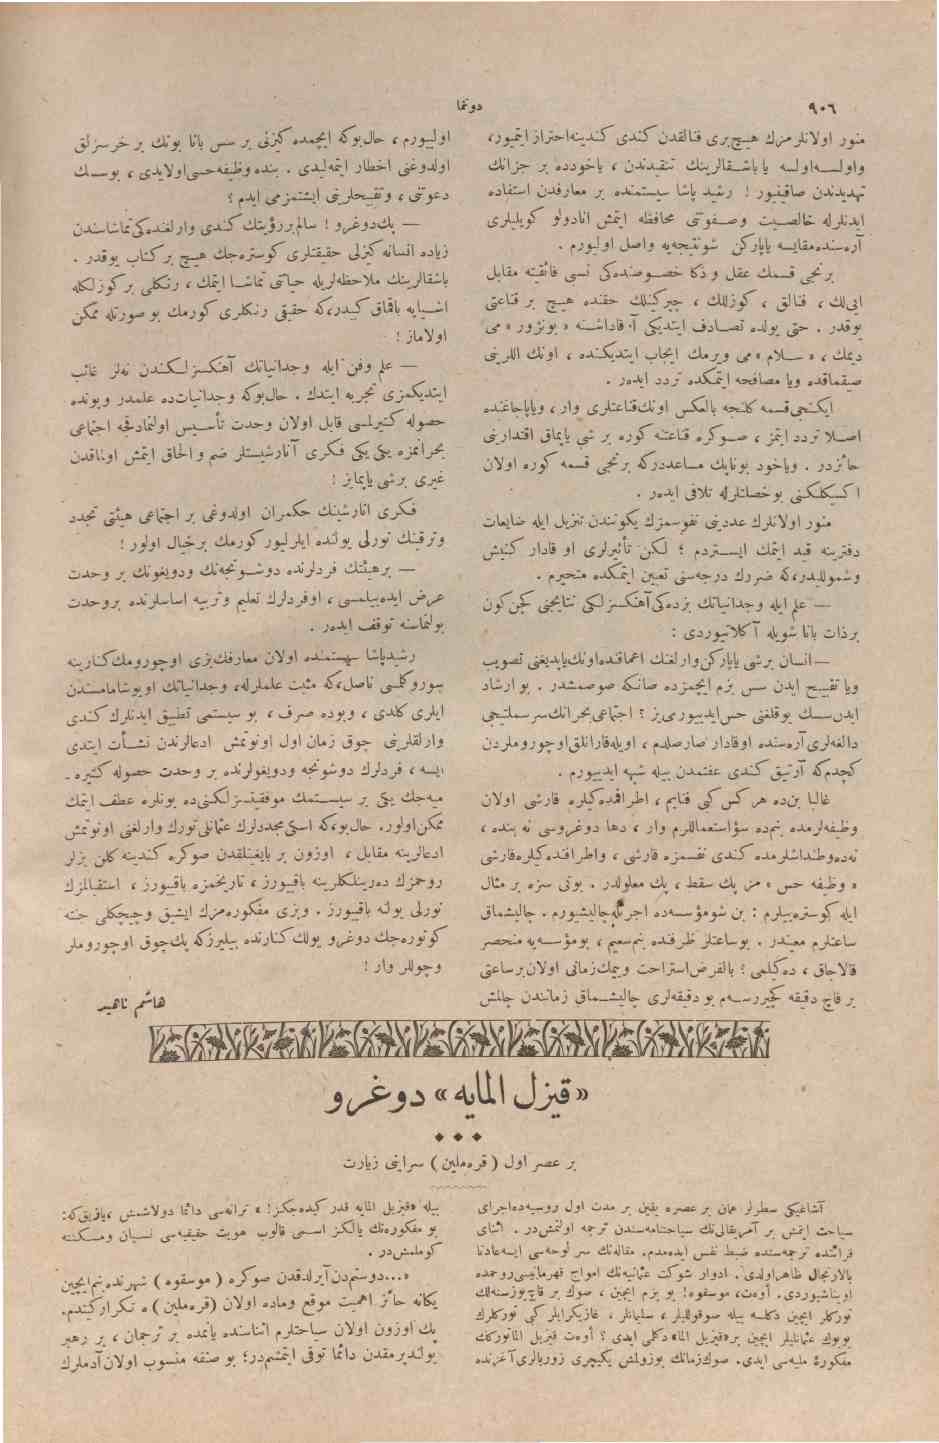 ٩٠٦
دونما
منور اولانلرمزك هیچ بری فنالقدن كندی كندینه احتراز ایتمیور،
واولسه اولسه یا باشقالرینك تنقیدندن ، یاخودده بر جزانك
تهدیدندن صاقینیور ! رشید پاشا سیستمنده بر معارفدن استفاده
ایدنلرله خالصیت وصفوتی محافظه ایتمش انادولو كویلیلری
آره‌سنده مقایسه یاپاركن شو نتیجه‌یه واصل اولیورم .
برنجی قسمك عقل و ذكا خصوصنده‌كی نسبی فائقیته مقابل
ایی‌لك ، فنالق ، كوزللك ، چیركینلك حقنده هیچ بر قناعتی
یوقدر . حتی یولده تصادف ایتدیكی آرقاداشنه « بونژور » می
دیمك ، « سلام » می ویرمك ایجاب ایتدیكنده ، اونك اللرینی
صیقماقده ویا مصافحه ایتمكده تردد ایده‌ر .
ایكنجی قسمه كلنجه بالعكس اونك قناعتلری وار ، ویاپاجاغنده
اصلا تردد ایتمز ، صوكره قناعتنه كوره بر شی یاپماق اقتدارینی
حائزدر . ویاخود بونا پك مساعددركه برنجی قسمه كوره اولان
اكسیكلكینی بو خصلتلرله تلافی ایده‌ر .
منور اولانلرك عددینی نفوسمزك یكونندن تنزیل ایله ضایعات
دفترینه قید ایتمك ایستردم ؛ لكن تأثیرلری او قادار كنیش
وشموللیدر،كه ضررك درجه‌سنی تعیین ایتمكده متحیرم .
— علم ایله وجدانیاتك بزده‌كی آهنكسزلكی نتایجنی كچن كون
برذات بانا شویله آكلاتیوردی :
— انسان برشی یاپاركن وارلغنك اعماقنده اونك یاپدیغنی تصویب
ویا تقبیح ایدن سس بزم ایچمزده صانكه صوصمشدر . بو ارشاد
ایدن سسك یوقلغنی حس ایدییورمی‌یز ؟ اجتماعی بحرانك سرسملتیجی
دالغه‌لری آره‌سنده اوقادار صارصلدم ، اویله قارانلق اوچورومل‌ردن
كچدم‌كه آرتیق كندی عفتمدن بیله شبهه ایدییورم .
غالبا بن‌ده هركس كبی فنایم ، اطرافمده‌كیلره قارشی اولان
وظیفه‌لرمده بنم‌ده سؤاستعماللرم وار ، دها دوغروسی نه بنده ،
نه‌ده وطنداشلرمده كندی نفسمزه قارشی ، واطرافنده‌كیلره قارشی
« وظیفه حس » مز پك سقط ، پك معلولدر . بونی سزه بر مثال
ایله كوستره‌بیلرم : بن شو مؤسسه‌ده اجرتله چالیشیورم . چالیشماق
ساعتلرم معیندر . بوساعتلر ظرفنده بنم سعیم ، بو مؤسسه‌یه منحصر
قالاجاق ، ده‌كیلمی ؛ بالفرض استراحت ویمك زمانی اولان برساعتی
بر قاچ دقیقه كچیررسه‌م بو دقیقه‌لری چالیشماق زمانندن چالمش
اولییورم ، حال‌بوكه ایچمده كیزلی بر سس بانا بونك بر خرسزلق
اولدوغنی اخطار ایتمه‌لیدی . بنده وظیفه حسی اولایدی ، بو سسك
دعوتنی ، وتقبیحلرینی ایشتمزمی ایدم ؟
— پك‌دوغرو ! سالم بر رؤیتك كندی وارلغنده‌كی تماشاسندن
زیاده انسانه كیزلی حقیقتلری كوستره‌جك هیچ بر كتاب یوقدر .
باشقالرینك ملاحظه‌لریله حیاتی تماشا ایتمك ، رنكلی بر كوزلكله
اشیایه باقماق كیدر،كه حقیقی رنكلری كورمك بو صورتله ممكن
اولاماز !
— علم وفن ایله وجدانیاتك آهنكسزلكندن نه‌لر غائب
ایتدیكمزی تجربه ایتدك . حال‌بوكه وجدانیات‌ده علمدر وبونده
حصوله كتیرلمسی قابل اولان وحدت تأسیس اولنمادقجه اجتماعی
بحرانمزه یكی یكی فكری آنارشیستلر ضم و الحاق ایتمش اولماقدن
غیری برشی یاپمایز !
فكری انارشینك حكمران اولدوغی بر اجتماعی هیئتی تجدد
وترقینك نورلی یولنده ایلرلیور كورمك بر خیال اولور !
— برهیئتك فردلرنده دوشونجه‌نك ودویغونك بر وحدت
عرض ایده‌بیلمسی ، اوفردلرك تعلیم وتربیه اساسلرنده بروحدت
بولنماسنه توقف ایده‌ر .
رشیدپاشا سیستمنده اولان معارفك بزی اوچورومك كنارینه
سوروكلمسی ناصل،كه مثبت علملرله، وجدانیاتك اویوشامامسندن
ایلری كلدی ، وبوده صرف ، بو سیستمی تطبیق ایدنلرك كندی
وارلقلرینی چوق زمان اول اونوتمش ادعالرندن نشأت ایتدی
ایسه ، فردلرك دوشونجه ودویغولرنده بر وحدت حصوله كتیره‌ـ
میه‌جك یكی بر سیستمك موفقیتسزلكنی‌ده بونلره عطف ایتمك
ممكن اولور. حال‌بو،كه اسكی مجددلرك عثمانلی تورك وارلغنی اونوتمش
ادعالرینه مقابل ، اوزون بر بایغینلقدن صوكره كندینه كلن بزلر
روحمزك ده‌رینلكلرینه باقیورز ، تاریخمزه باقییورز ، استقبالمزك
نورلی یولنه باقییورز . وبزی مفكوره‌مزك ایشیق وچیچكلی جنته
كوتوره‌جك دوغرو یولك كنارنده بیلیرزكه پك چوق اوچوروملر
وچوللر وار !
هاشم ناهید
«قیزل المایه» دوغرو
بر عصر اول ( قره‌ملین ) سراینی زیارت
آشاغیكی سطرلر همان بر عصره یقین بر مدت اول روسیه‌ده اجرای
سیاحت ایتمش بر آمریقالی‌نك سیاحتنامه‌سندن ترجمه اولنمش‌در . اثنای
قرائتده ترجمه‌سنده ضبط نفس ایده‌مدم. مقاله‌نك سر لوحه‌سی ایسه عادتا
بالارتجال ظاهر اولدی. ادوار شوكت عثمانیه‌نك امواج قهرمانیسی روحمده
اویناشیوردی. أوه‌ت، موسقوه! بو بزم ایچین ، صوك بر قاچ یوزسنه‌لك
توركلر ایچین دكلسه بیله صوقوللیلر ، سلیمانلر ، غازیكرایلر كبی توركلرك
بویوك عثمانلیلر ایچین بر«قیزیل الما» دكلمی ایدی ؟ أوه‌ت قیزیل الما توركك
مفكورهٔ ملیه‌سی ایدی. صوك زمانك بوزولمش یكیچری زوربالری آغزنده
بیله «قیزیل المایه قدر كیده‌جكز! » ترانه‌سی دائما دولاشمش ،یازیق‌كه:
بو مفكوره‌نك یالكز اسمی قالوب هویت حقیقیه‌سی نسیان ومسكنته
كوملمش‌در .
«...دوستمدن آیرلدقدن صوكره ( موسقوه ) شهرنده بنم ایچین
یكانه حائز اهمیت موقع وماده اولان (قره‌ملین) ه تكرار كیتدم.
پك اوزون اولان سیاحتلرم اثناسنده یانمده بر ترجمان ، بر رهبر
بولندیرمقدن دائما توقی ایتمشم‌در؛ بو صنفه منسوب اولان آدملرك